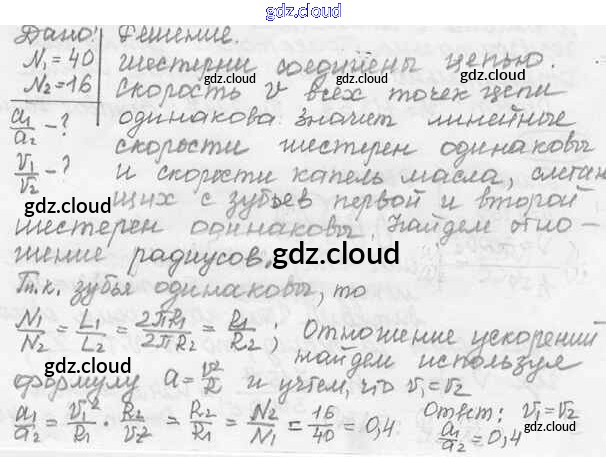 gdz.cloud
Дано: Решение.
N₁=40 шестерни соединены цепью.
N₂=16 Скорость v всех точек цепи
a₁/a₂ - ? одинакова значит линейные
скорости шестерен одинаковы
v₁/v₂ - ? и скорости капель масла, слетаю
щих с зубьев первой и второй
шестерен одинаковы. Найдем отно-
шение радиусов.
Т.к. зубья одинаковы, то
N₁/N₂ = L₁/L₂ = 2πR₁/2πR₂ = R₁/R₂; Отношение ускорений
найдем используя
формулу a = v²/R и учтем, что v₁=v₂
a₁/a₂ = v₁²/R₁ · R₂/v₂ = R₂/R₁ = N₂/N₁ = 16/40 = 0,4 Ответ: v₁=v₂
a₁/a₂ = 0,4
gdz.cloud
gdz.cloud
gdz.cloud
gdz.cloud
gdz.cloud
gdz.cloud
gdz.cloud
gdz.cloud
gdz.cloud